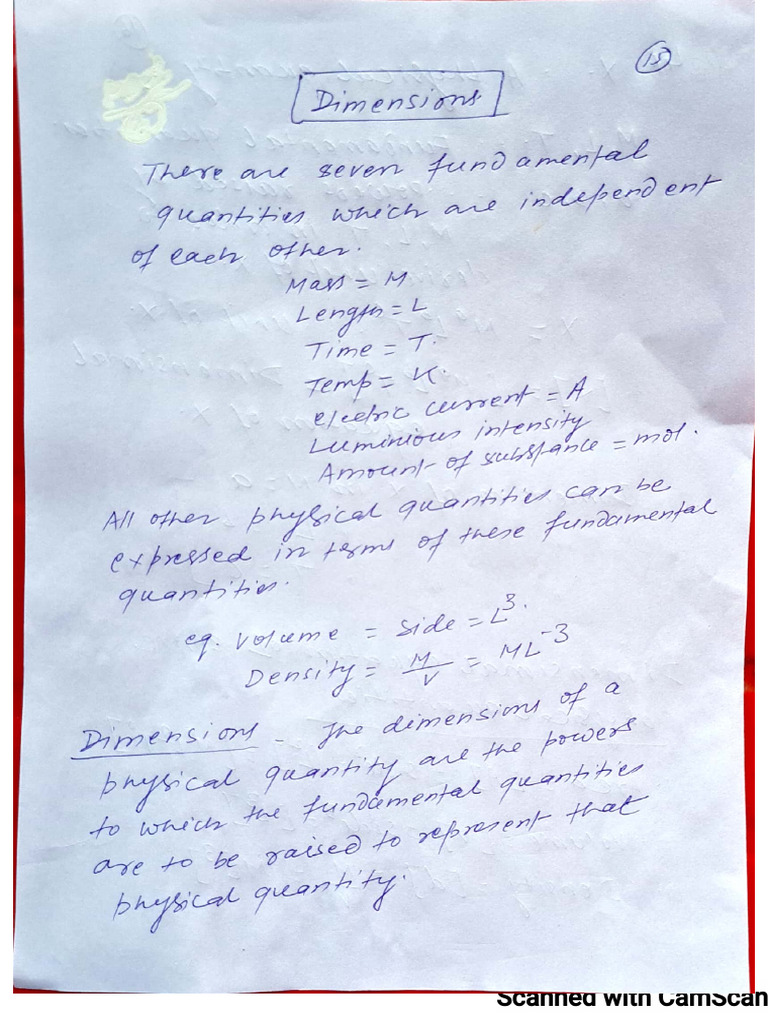 15
Dimensions
There are seven fundamental
quantities which are independent
of each other.
Mass = M
Length = L
Time = T.
Temp = K.
electric current = A
Luminious intensity
Amount of substance = mol.
All other physical quantities can be
expressed in terms of these fundamental
quantities.
eq. volume = side = L³.
Density = M/V = ML⁻³
Dimensions - The dimensions of a
physical quantity are the powers
to which the fundamental quantities
are to be raised to represent that
physical quantity.
Scanned with CamScan